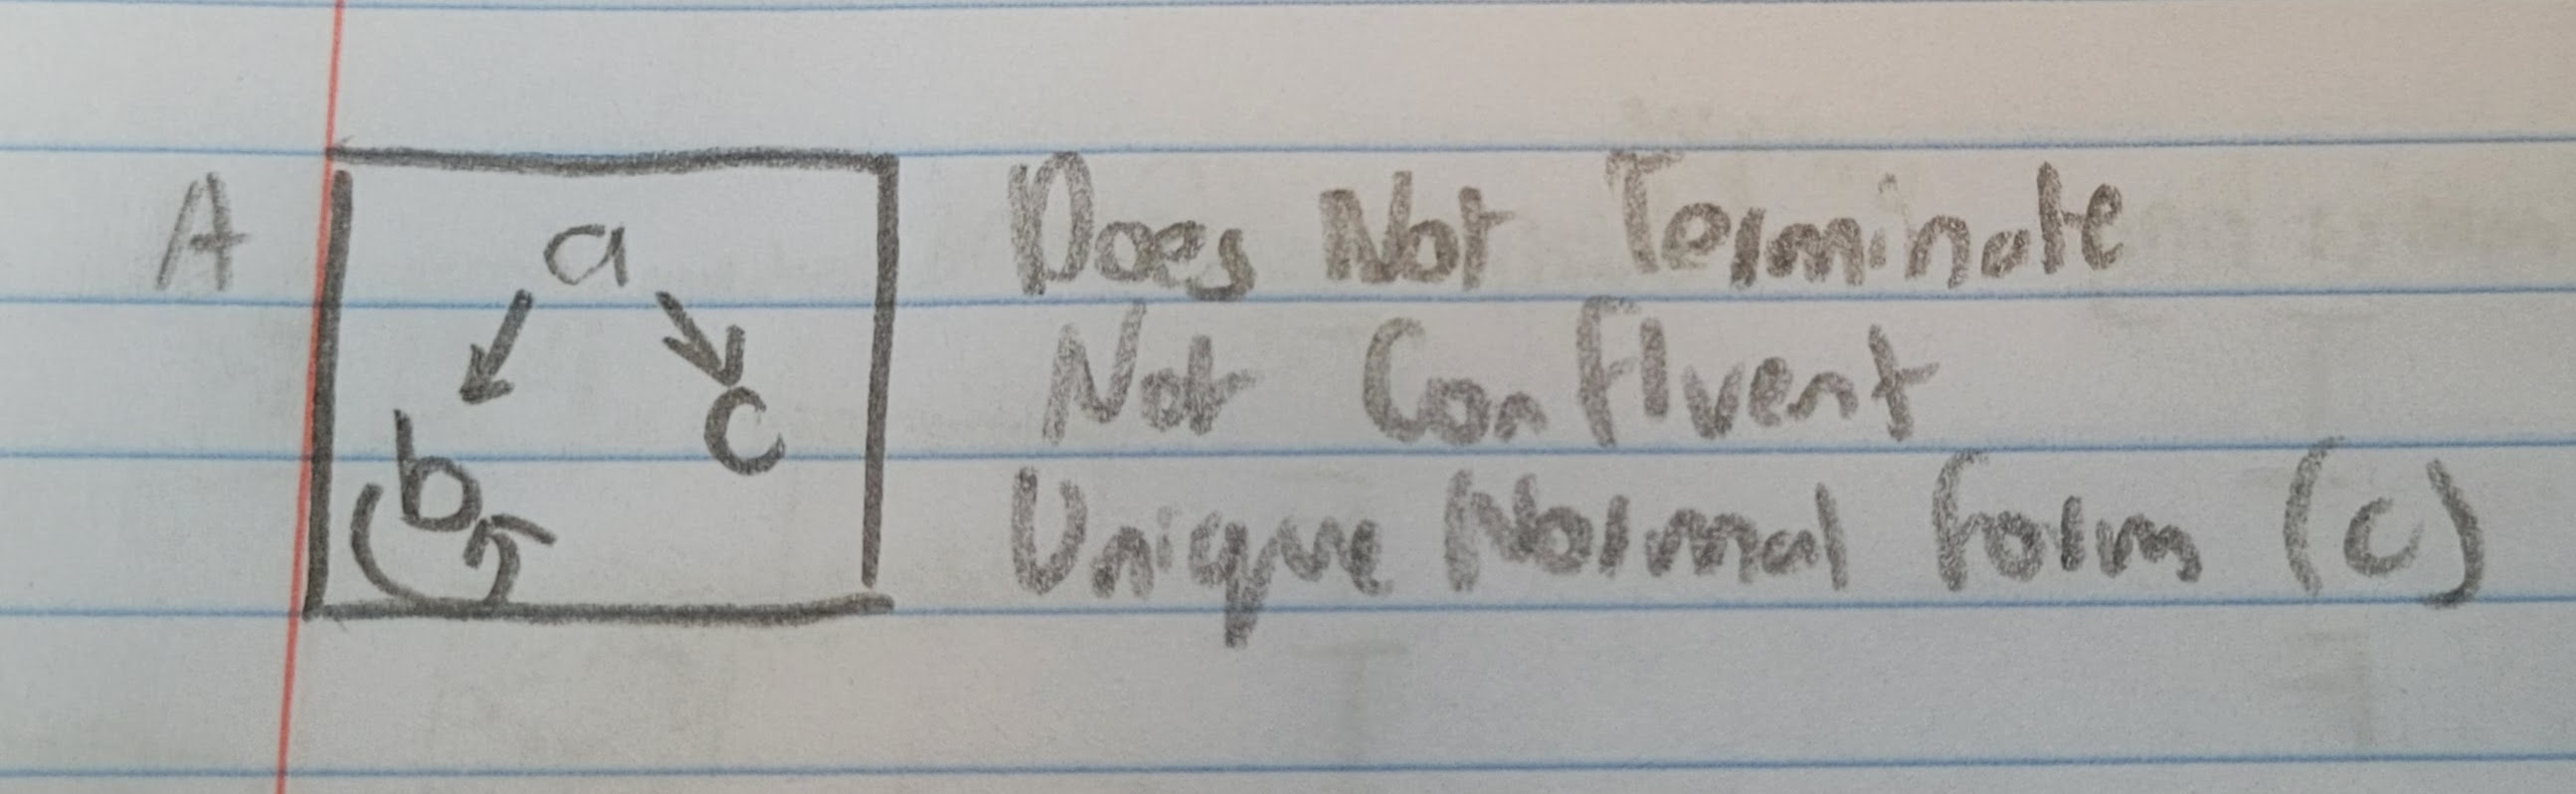 A
a
b c
Does Not Terminate
Not Confluent
Unique Normal Form (c)